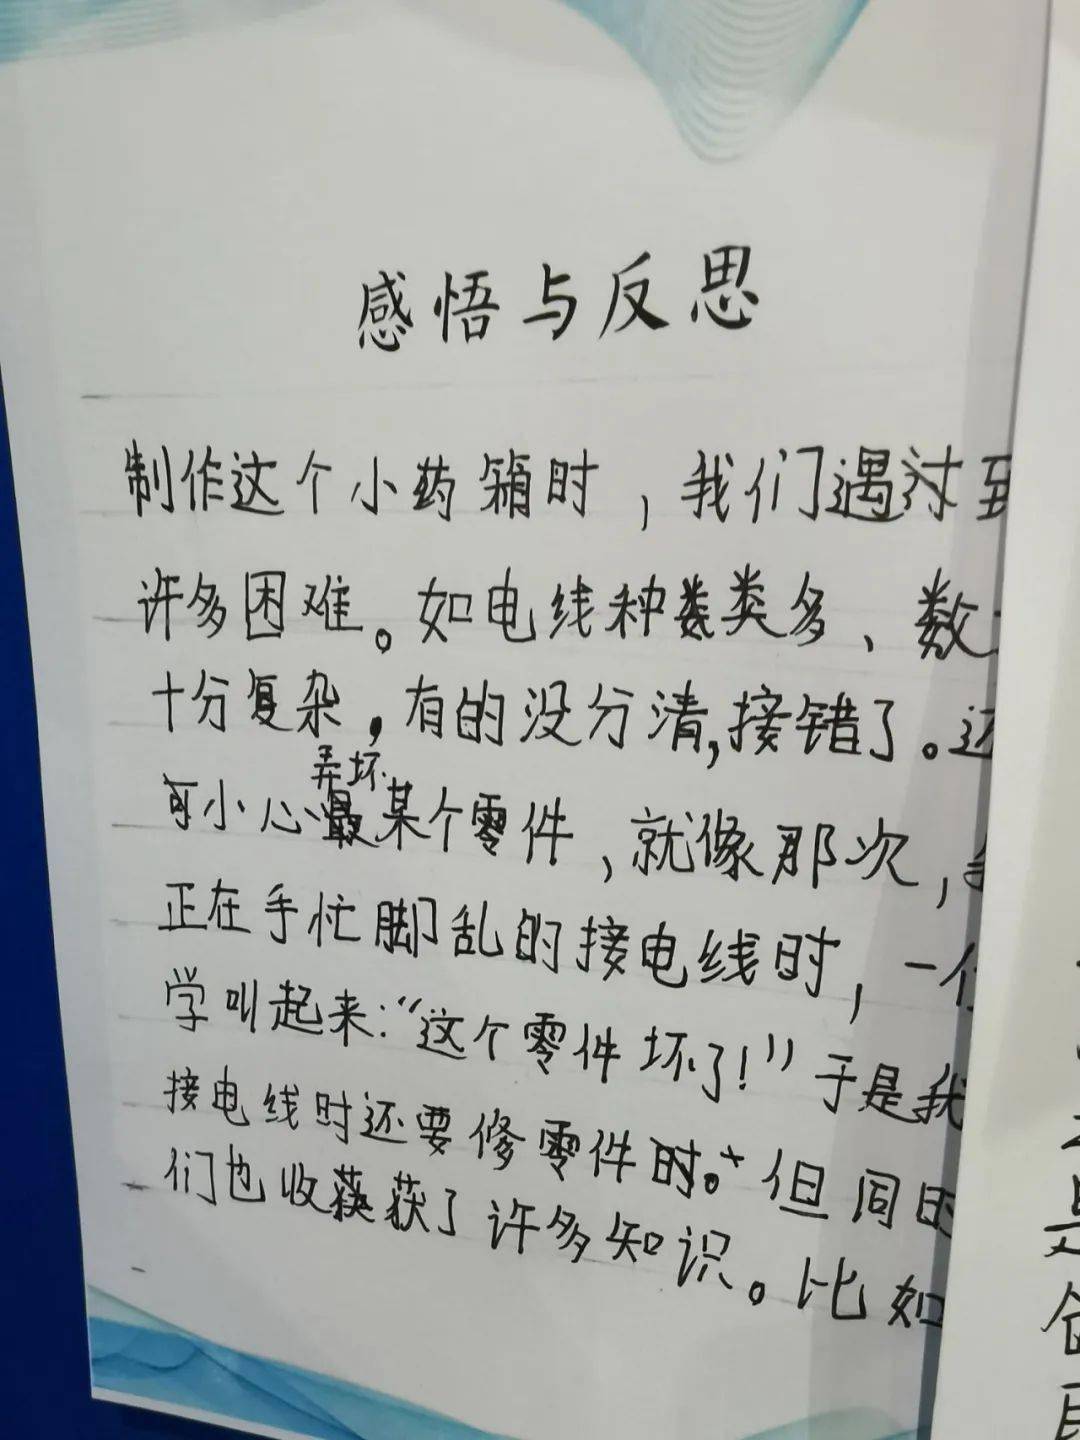 感悟与反思
制作这个小药箱时，我们遇过到
许多困难。如电线种类多、数
十分复杂，有的没分清，接错了。还
可小心弄坏某个零件，就像那次，
正在手忙脚乱的接电线时，一位
学叫起来：“这个零件坏了！”于是我
接电线时还要修零件时。但同时
们也收获了许多知识。比如